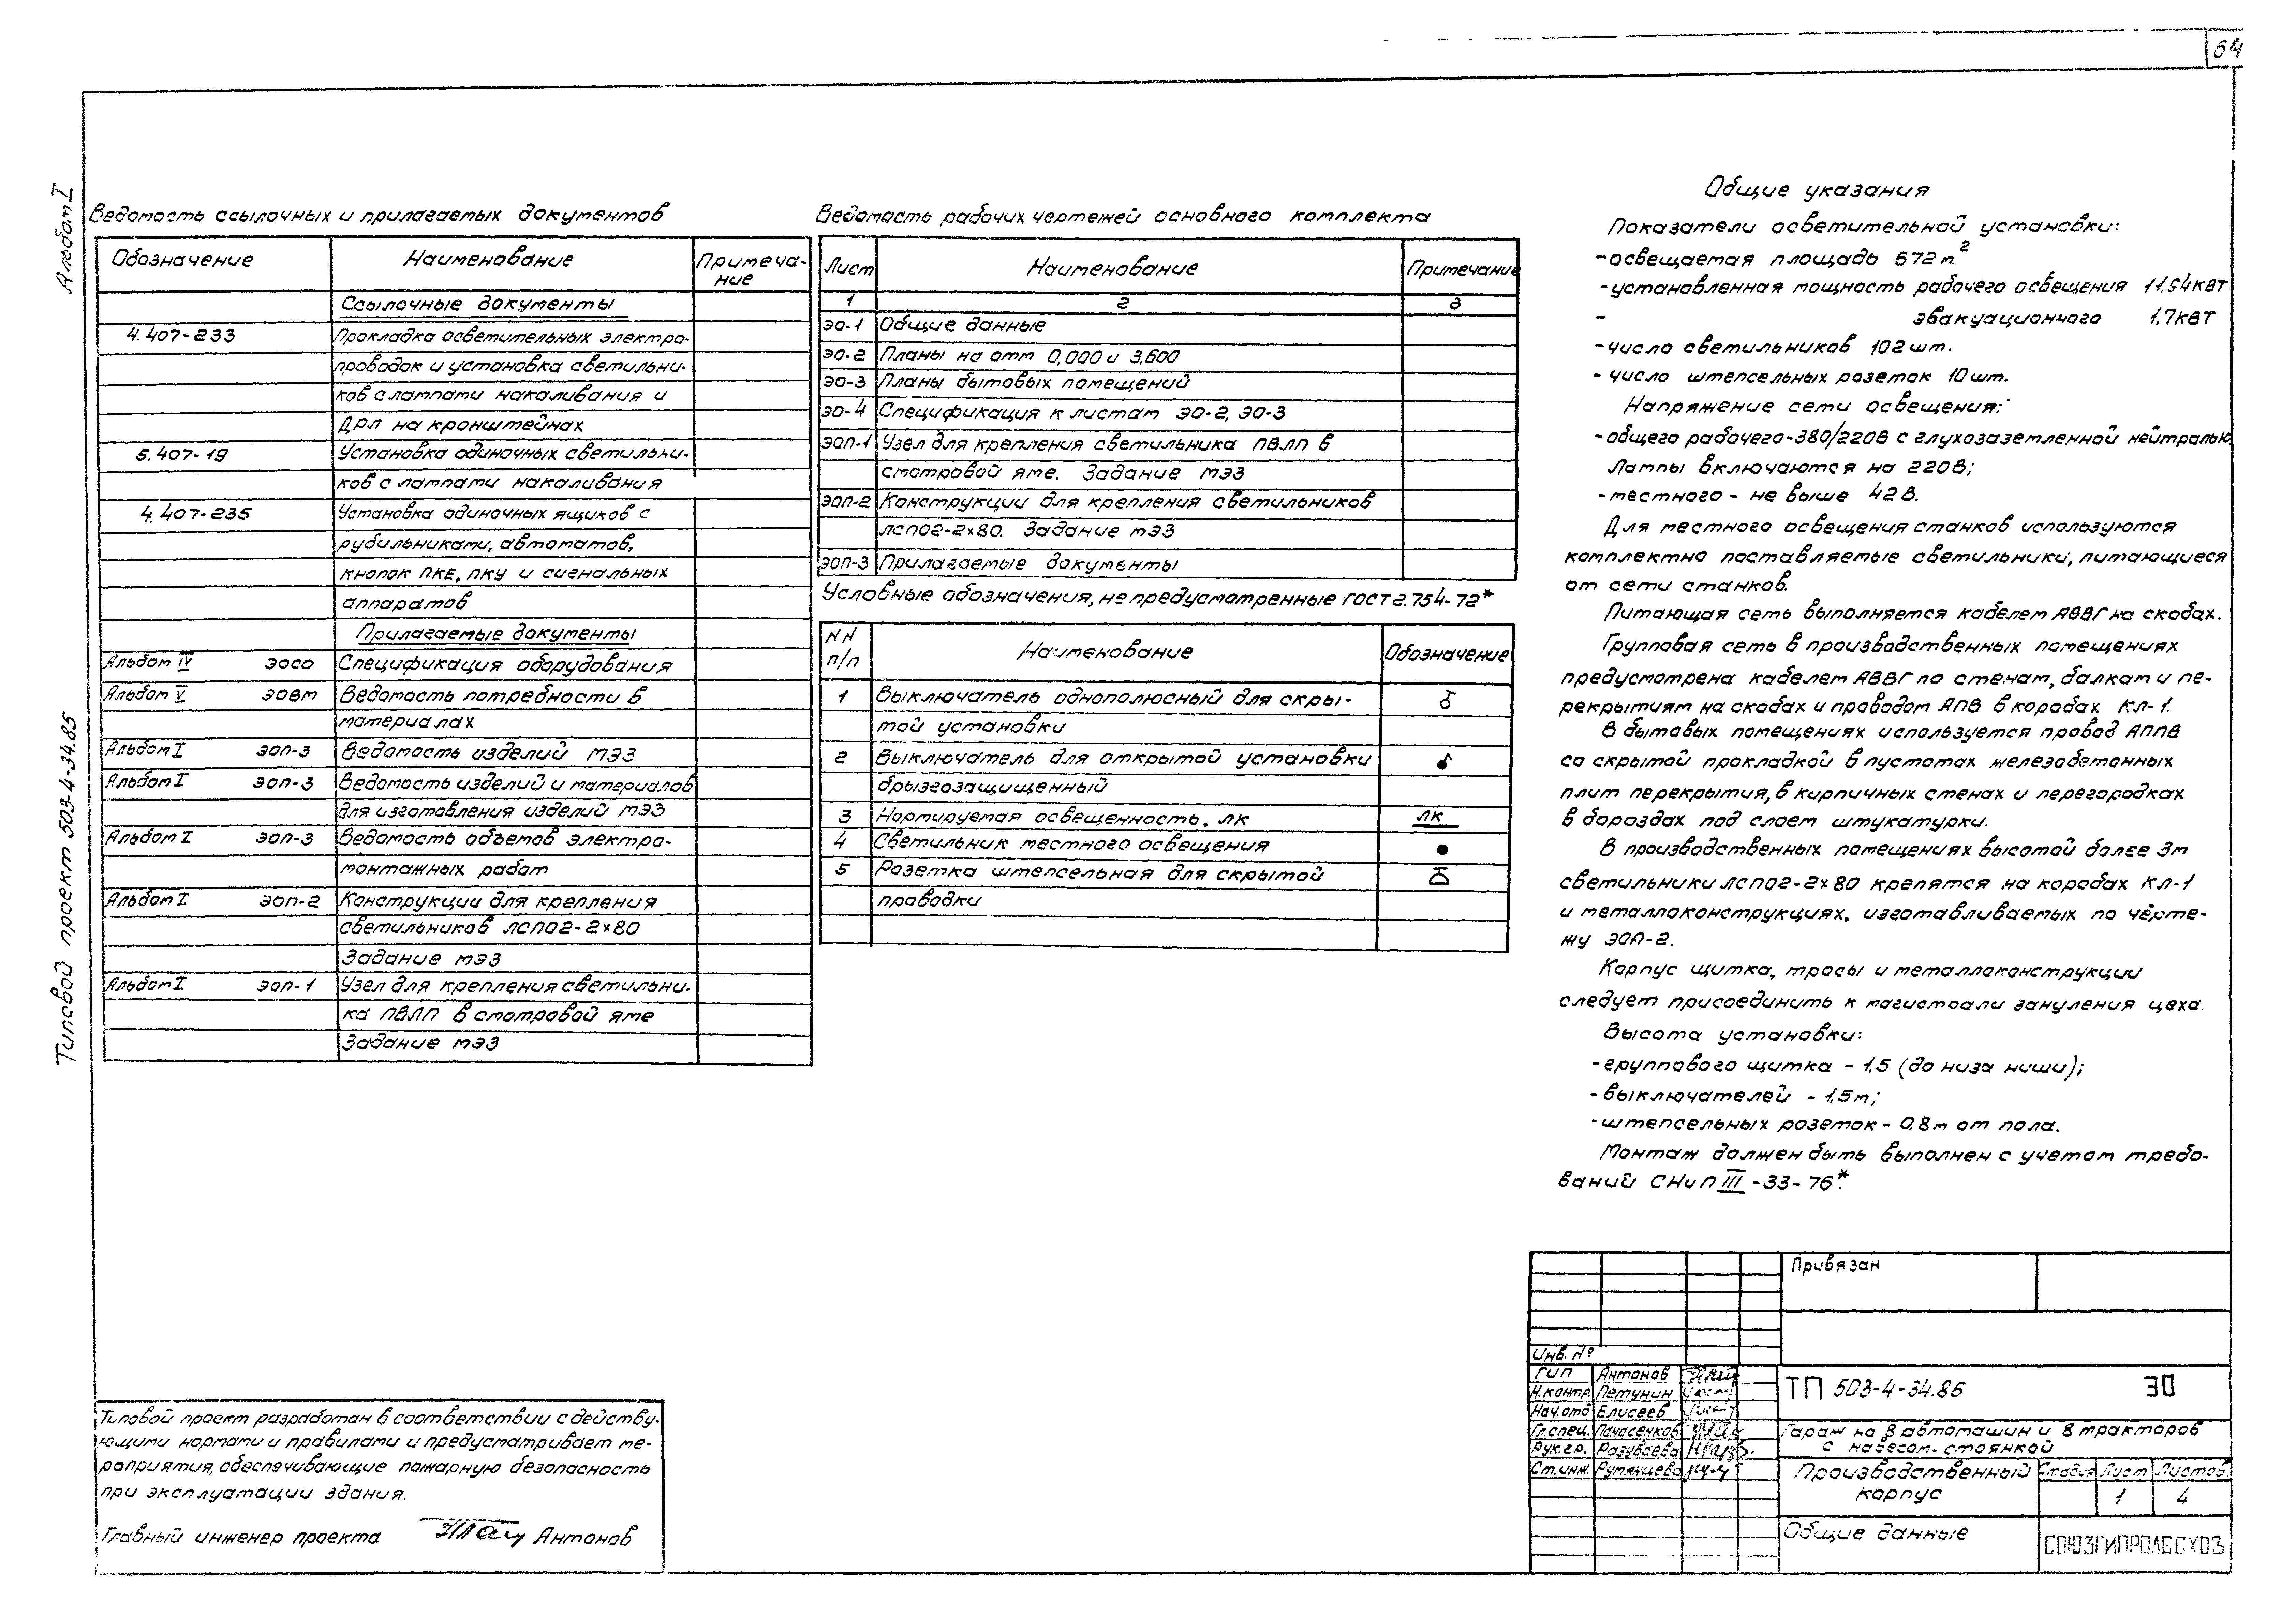 64
Альбом I
Типовой проект 503-4-34.85
Ведомость ссылочных и прилагаемых документов
Обозначение Наименование Примеча-
ние
Ссылочные документы
4.407-233 Прокладка осветительных электро-
проводок и установка светильни-
ков с лампами накаливания и
ДРЛ на кронштейнах
5.407-19 Установка одиночных светильни-
ков с лампами накаливания
4.407-235 Установка одиночных ящиков с
рубильниками, автоматов,
кнопок ПКЕ, ПКУ и сигнальных
аппаратов
Прилагаемые документы
Альбом IV ЭОСО Спецификация оборудования
Альбом V ЭОВМ Ведомость потребности в
материалах
Альбом I ЭОП-3 Ведомость изделий МЭЗ
Альбом I ЭОП-3 Ведомость изделий и материалов
для изготовления изделий МЭЗ
Альбом I ЭОП-3 Ведомость объемов электро-
монтажных работ
Альбом I ЭОП-2 Конструкции для крепления
светильников ЛСП02-2×80
Задание МЭЗ
Альбом I ЭОП-1 Узел для крепления светильни-
ка ПВЛП в смотровой яме
Задание МЭЗ
Ведомость рабочих чертежей основного комплекта
Лист Наименование Примечание
1 2 3
ЭО-1 Общие данные
ЭО-2 Планы на отм 0,000 и 3,600
ЭО-3 Планы бытовых помещений
ЭО-4 Спецификация к листам ЭО-2, ЭО-3
ЭОП-1 Узел для крепления светильника ПВЛП в
смотровой яме. Задание МЭЗ
ЭОП-2 Конструкции для крепления светильников
ЛСП02-2×80. Задание МЭЗ
ЭОП-3 Прилагаемые документы
Условные обозначения, не предусмотренные ГОСТ 2.754-72*
NN
п/п Наименование Обозначение
1 Выключатель однополюсный для скры-
той установки
2 Выключатель для открытой установки
брызгозащищенный
3 Нормируемая освещенность, лк лк
4 Светильник местного освещения
5 Розетка штепсельная для скрытой
проводки
Общие указания
Показатели осветительной установки:
-освещаемая площадь 672 м²
-установленная мощность рабочего освещения 11,94 кВт
- эвакуационного 1,7 кВт
-число светильников 102 шт.
- число штепсельных розеток 10 шт.
Напряжение сети освещения:
-общего рабочего-380/220В с глухозаземленной нейтралью,
Лампы включаются на 220В;
-местного - не выше 42В.
Для местного освещения станков используются
комплектно поставляемые светильники, питающиеся
от сети станков.
Питающая сеть выполняется кабелем АВВГ на скобах.
Групповая сеть в производственных помещениях
предусмотрена кабелем АВВГ по стенам, балкам и пе-
рекрытиям на скобах и проводом АПВ в коробах КЛ-1.
В бытовых помещениях используется провод АППВ
со скрытой прокладкой в пустотах железобетонных
плит перекрытия, в кирпичных стенах и перегородках
в бороздах под слоем штукатурки.
В производственных помещениях высотой более 3м
светильники ЛСП02-2×80 крепятся на коробах КЛ-1
и металлоконструкциях, изготавливаемых по черте-
жу ЭОП-2.
Корпус щитка, тросы и металлоконструкции
следует присоединить к магистрали зануления цеха.
Высота установки:
-группового щитка - 1,5 (до низа ниши);
-выключателей - 1,5м;
-штепсельных розеток - 0,8м от пола.
Монтаж должен быть выполнен с учетом требо-
ваний СНиП III-33-76*.
Типовой проект разработан в соответствии с действу-
ющими нормами и правилами и предусматривает ме-
роприятия, обеспечивающие пожарную безопасность
при эксплуатации здания.
Главный инженер проекта Антонов
Привязан
Инв. №
ГИП Антонов
Н.контр. Петунин
Нач.отд Елисеев
Гл.спец. Панасенков
Рук.гр. Разуваева
Ст.инж. Румянцева
ТП 503-4-34.85 ЭО
Гараж на 8 автомашин и 8 тракторов
с навесом-стоянкой
Производственный
корпус
Стадия Лист Листов
1 4
Общие данные
СОЮЗГИПРОЛЕСХОЗ